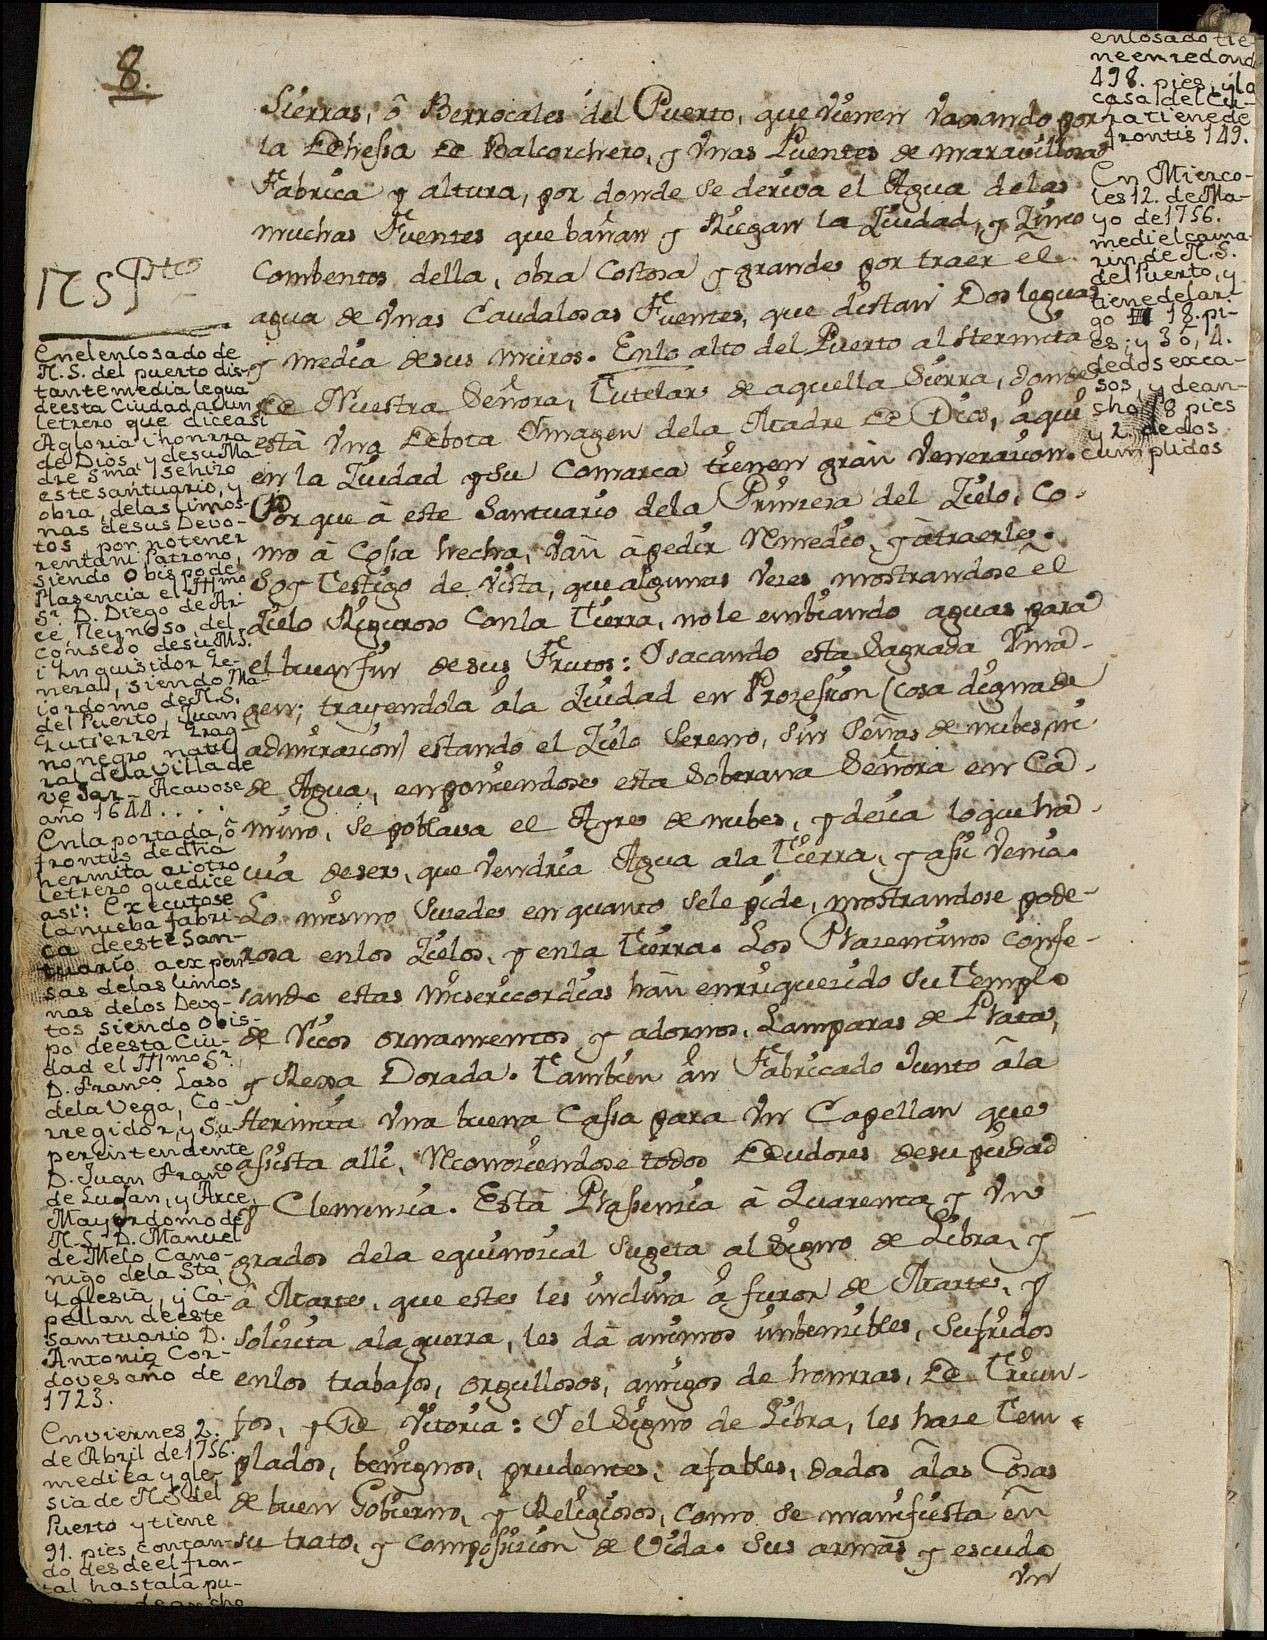 8.
Sierras, ô Berrocales del Puerto, que vienen vaxando por
la Dehessa de Balcorchero, y Vnas Puentes de maravillosa
Fabrica y altura, por donde se deriva el Agua de las
muchas Fuentes que bañan y Riegan la Ziudad, y Zinco
Combentos della, obra Costosa y grande por traer el
agua de Vnas Caudalosas Fuentes, que distan Dos leguas
y media de sus muros. En lo alto del Puerto al Hermita
de Nuestra Señora, Tutelar de aquella Sierra, donde
està Vna Debota Ymagen de la Madre de Dios, à qui
en la Ziudad y su Comarca tienen gràn Veneracion.
Por que à este Santuario de la Princesa del Zielo, Co-
mo à Cossa hecha, vàn à pedir Remedio, y à traerle.
Soy Testigo de vista, que algunas vezes mostrandose el
Zielo Riguroso con la Tierra, no le embiando aguas para
el buen fin de sus Frutos: I sacando esta Sagrada Yma-
gen; trayendola à la Ziudad en Prozesion (cosa digna de
admirazion) estando el Zielo Sereno, sin Señas de nubes, ni
de Agua, en poniendose esta Soberana Señora en Ca-
mino, se poblava el Ayre de nubes, y decia lo que ha-
via de ser, que Vendria Agua a la Tierra, y assi venia.
Lo mismo Suzede en quanto se le pide, mostrandose pode-
rosa en los Zielos, y en la Tierra. Los Plazentinos confe-
sando estas misericordias hàn enrriquezido su Templo
de Ricos ornamentos y adornos, Lamparas de Plata,
y Rexa Dorada. Tambien àn Fabricado Junto à la
Hermita Vna buena Cassa para Vn Capellan que
assista alli, Reconociendose todos Deudores de su piedad
y Clemenzia. Està Plassenzia à Quarenta y Vn
grados de la equinozial sugeta al Signo de Libra, y
à Marte, que este les inclina à furor de Marte, y
solizita a la guerra, les dà animos imbenzibles, Sufridos
en los trabajos, orgullosos, amigos de honrras, de Triun-
fos, y de Vitoria: I el Signo de Libra, les haze Tem-
plados, benignos, prudentes, afables, dados à las Cosas
de buen Gobierno, y Religiosos, como se manifiesta en
su trato, y composizion de Vida. Sus armas y escudo
Vn
En el enlosado de
N. S. del puerto dis-
tante media legua
de esta Ciudad ai un
letrero que dice asi
A gloria i honrra
de Dios y de su Ma-
dre Sma. se hizo
este santuario, y
obra, de las limos-
nas de sus Devo-
tos por no tener
renta ni Patrono,
siendo Obispo de
Plasencia el Illmo
Sr. D. Diego de Ar-
ce, Reynoso, del
consejo de su M.
i Ynquisidor Ge-
neral, siendo Ma-
iordomo de N. S.
del Puerto, Juan
Gutierrez Trag-
no negro, natu-
ral de la villa de
Vejar. Acavose
año 1644...
En la portada, ô
frontis de dha
hermita ai otro
letrero que dice
asi: Executose
la nueba fabri-
ca de este San-
tuario a expen-
sas de las limos
nas de los Devo-
tos siendo Obis-
po de esta Ciu-
dad el Illmo Sr.
D. Franco. Laso
de la Vega, Co-
rregidor, y Su-
perintendente
D. Juan Franco
de Lujan, y Arce,
Mayordomo de
N. S. D. Manuel
de Melo Cano-
nigo de la Sta.
Yglesia, y Ca-
pellan de este
santuario D.
Antonio Cor-
doves año de
1723.
En viernes 2.
de Abril de 1756.
medi la ygle-
sia de N. S. del
Puerto y tiene
91. pies contan-
do desde el fron-
tal hasta la pu-
enlosado tie
ne en redond
498. pies, y la
casa del Cu-
ra tiene de
frontis 149.
En Mierco-
les 12. de Ma-
yo de 1756.
medi el cama-
rin de N. S.
del Puerto, y
tiene de lar-
go 18. pi-
es, y 3 ô, 4.
dedos exca-
sos, y de an-
cho 18 pies
y 2. dedos
cumplidos